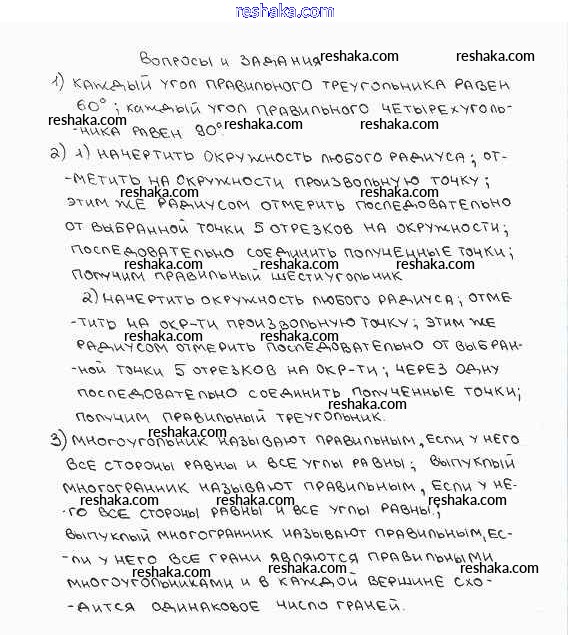 reshaka.com
Вопросы и задания reshaka.com reshaka.com
1) Каждый угол правильного треугольника равен
60°; каждый угол правильного четырехуголь-
reshaka.com reshaka.com reshaka.com
-ника равен 90°
2) 1) Начертить окружность любого радиуса; от-
-метить на окружности произвольную точку;
reshaka.com reshaka.com
этим же радиусом отмерить последовательно
от выбранной точки 5 отрезков на окружности;
последовательно соединить полученные точки;
reshaka.com reshaka.com reshaka.com
получим правильный шестиугольник
2) Начертить окружность любого радиуса; отме
-тить на окр-ти произвольную точку; этим же
reshaka.com reshaka.com reshaka.com
радиусом отмерить последовательно от выбран-
-ной точки 5 отрезков на окр-ти; через одну
последовательно соединить полученные точки;
reshaka.com
получим правильный треугольник.
reshaka.com
3) Многоугольник называют правильным, если у него
все стороны равны и все углы равны; выпуклый
многогранник называют правильным, если у не-
reshaka.com reshaka.com reshaka.com
-го все стороны равны и все углы равны;
выпуклый многогранник называют правильным, ес-
-ли у него все грани являются правильными
reshaka.com reshaka.com reshaka.com
многоугольниками и в каждой вершине схо-
-дится одинаковое число граней.